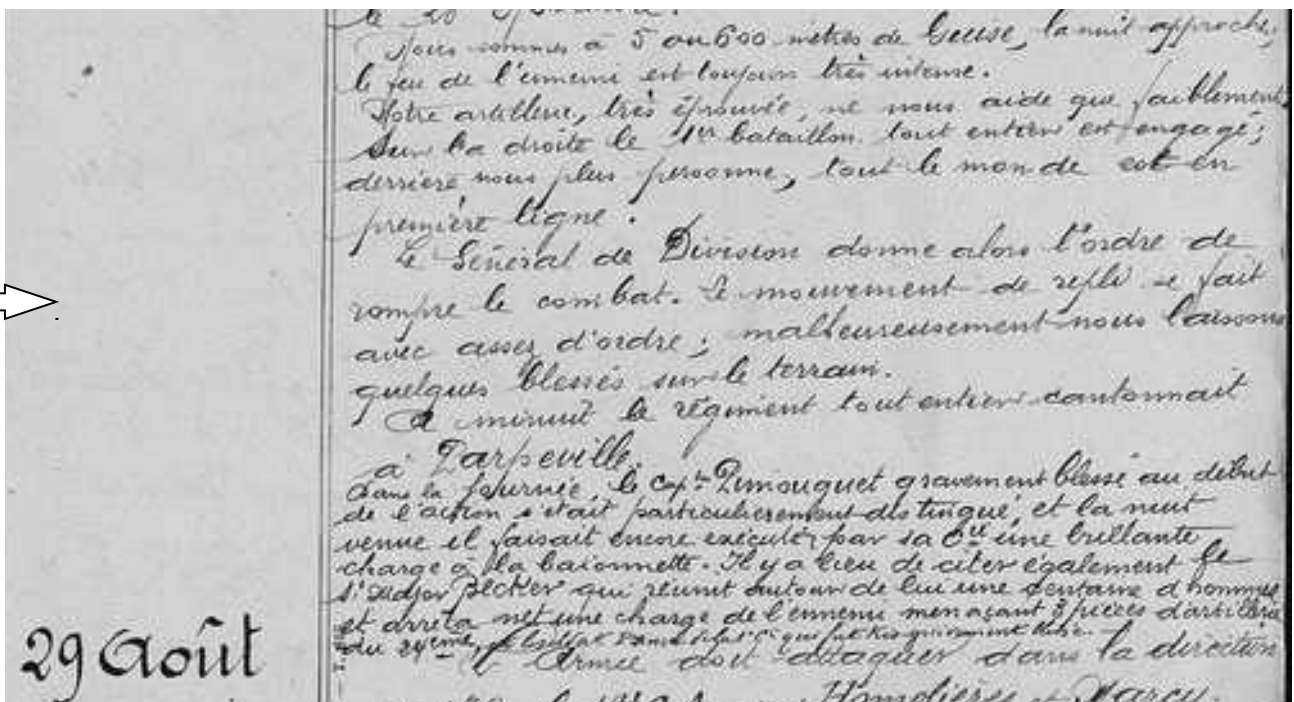 Nous sommes à 5 ou 600 mètres de Guise, la nuit approche,
le feu de l'ennemi est toujours très intense.
Notre artillerie, très éprouvée, ne nous aide que faiblement.
Sur la droite le 1er bataillon tout entier est engagé;
derrière nous plus personne, tout le monde est en
première ligne.
Le Général de Division donne alors l'ordre de
rompre le combat. Le mouvement de repli se fait
avec assez d'ordre; malheureusement nous laissons
quelques blessés sur le terrain.
A minuit le régiment tout entier cantonnait
à Parpeville.
Dans la journée, le Capne gravement blessé au début
de l'action s'était particulièrement distingué, et la nuit
venue il faisait encore exécuter par sa Cie une brillante
charge à la baïonnette. Il y a lieu de citer également le
s/ major Becker qui réunit autour de lui une centaine d'hommes
et arrêta net une charge de l'ennemi menaçant 3 pièces d'artillerie
du 29ème, le soldat qui fut très gravement
29 Août
L'Armée doit attaquer dans la direction
et Marcy.